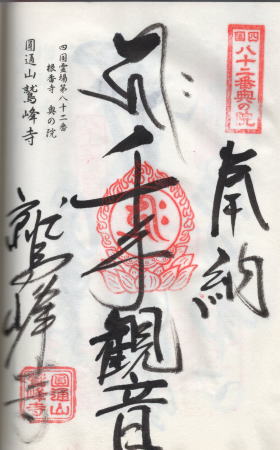 四国
八十二番奥の院
奉納
千手観音
四国霊場第八十二番
根香寺 奥の院
圓通山 鷲峰寺
鷲峰寺
圓通山
鷲峰寺